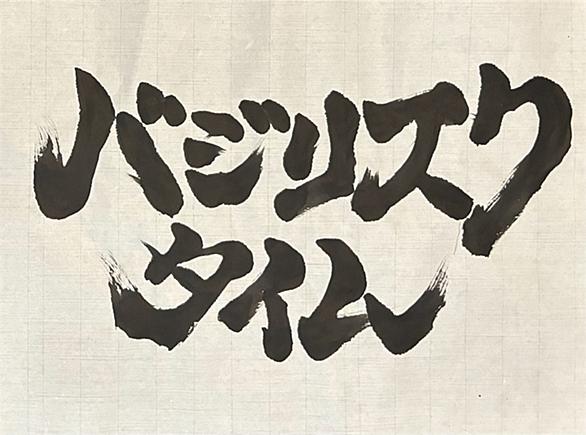 バジリスク
タイム